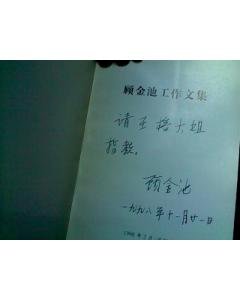 顾金池工作文集
请王格大姐
指教.
顾金池
一九九八年十一月廿一日
1998年